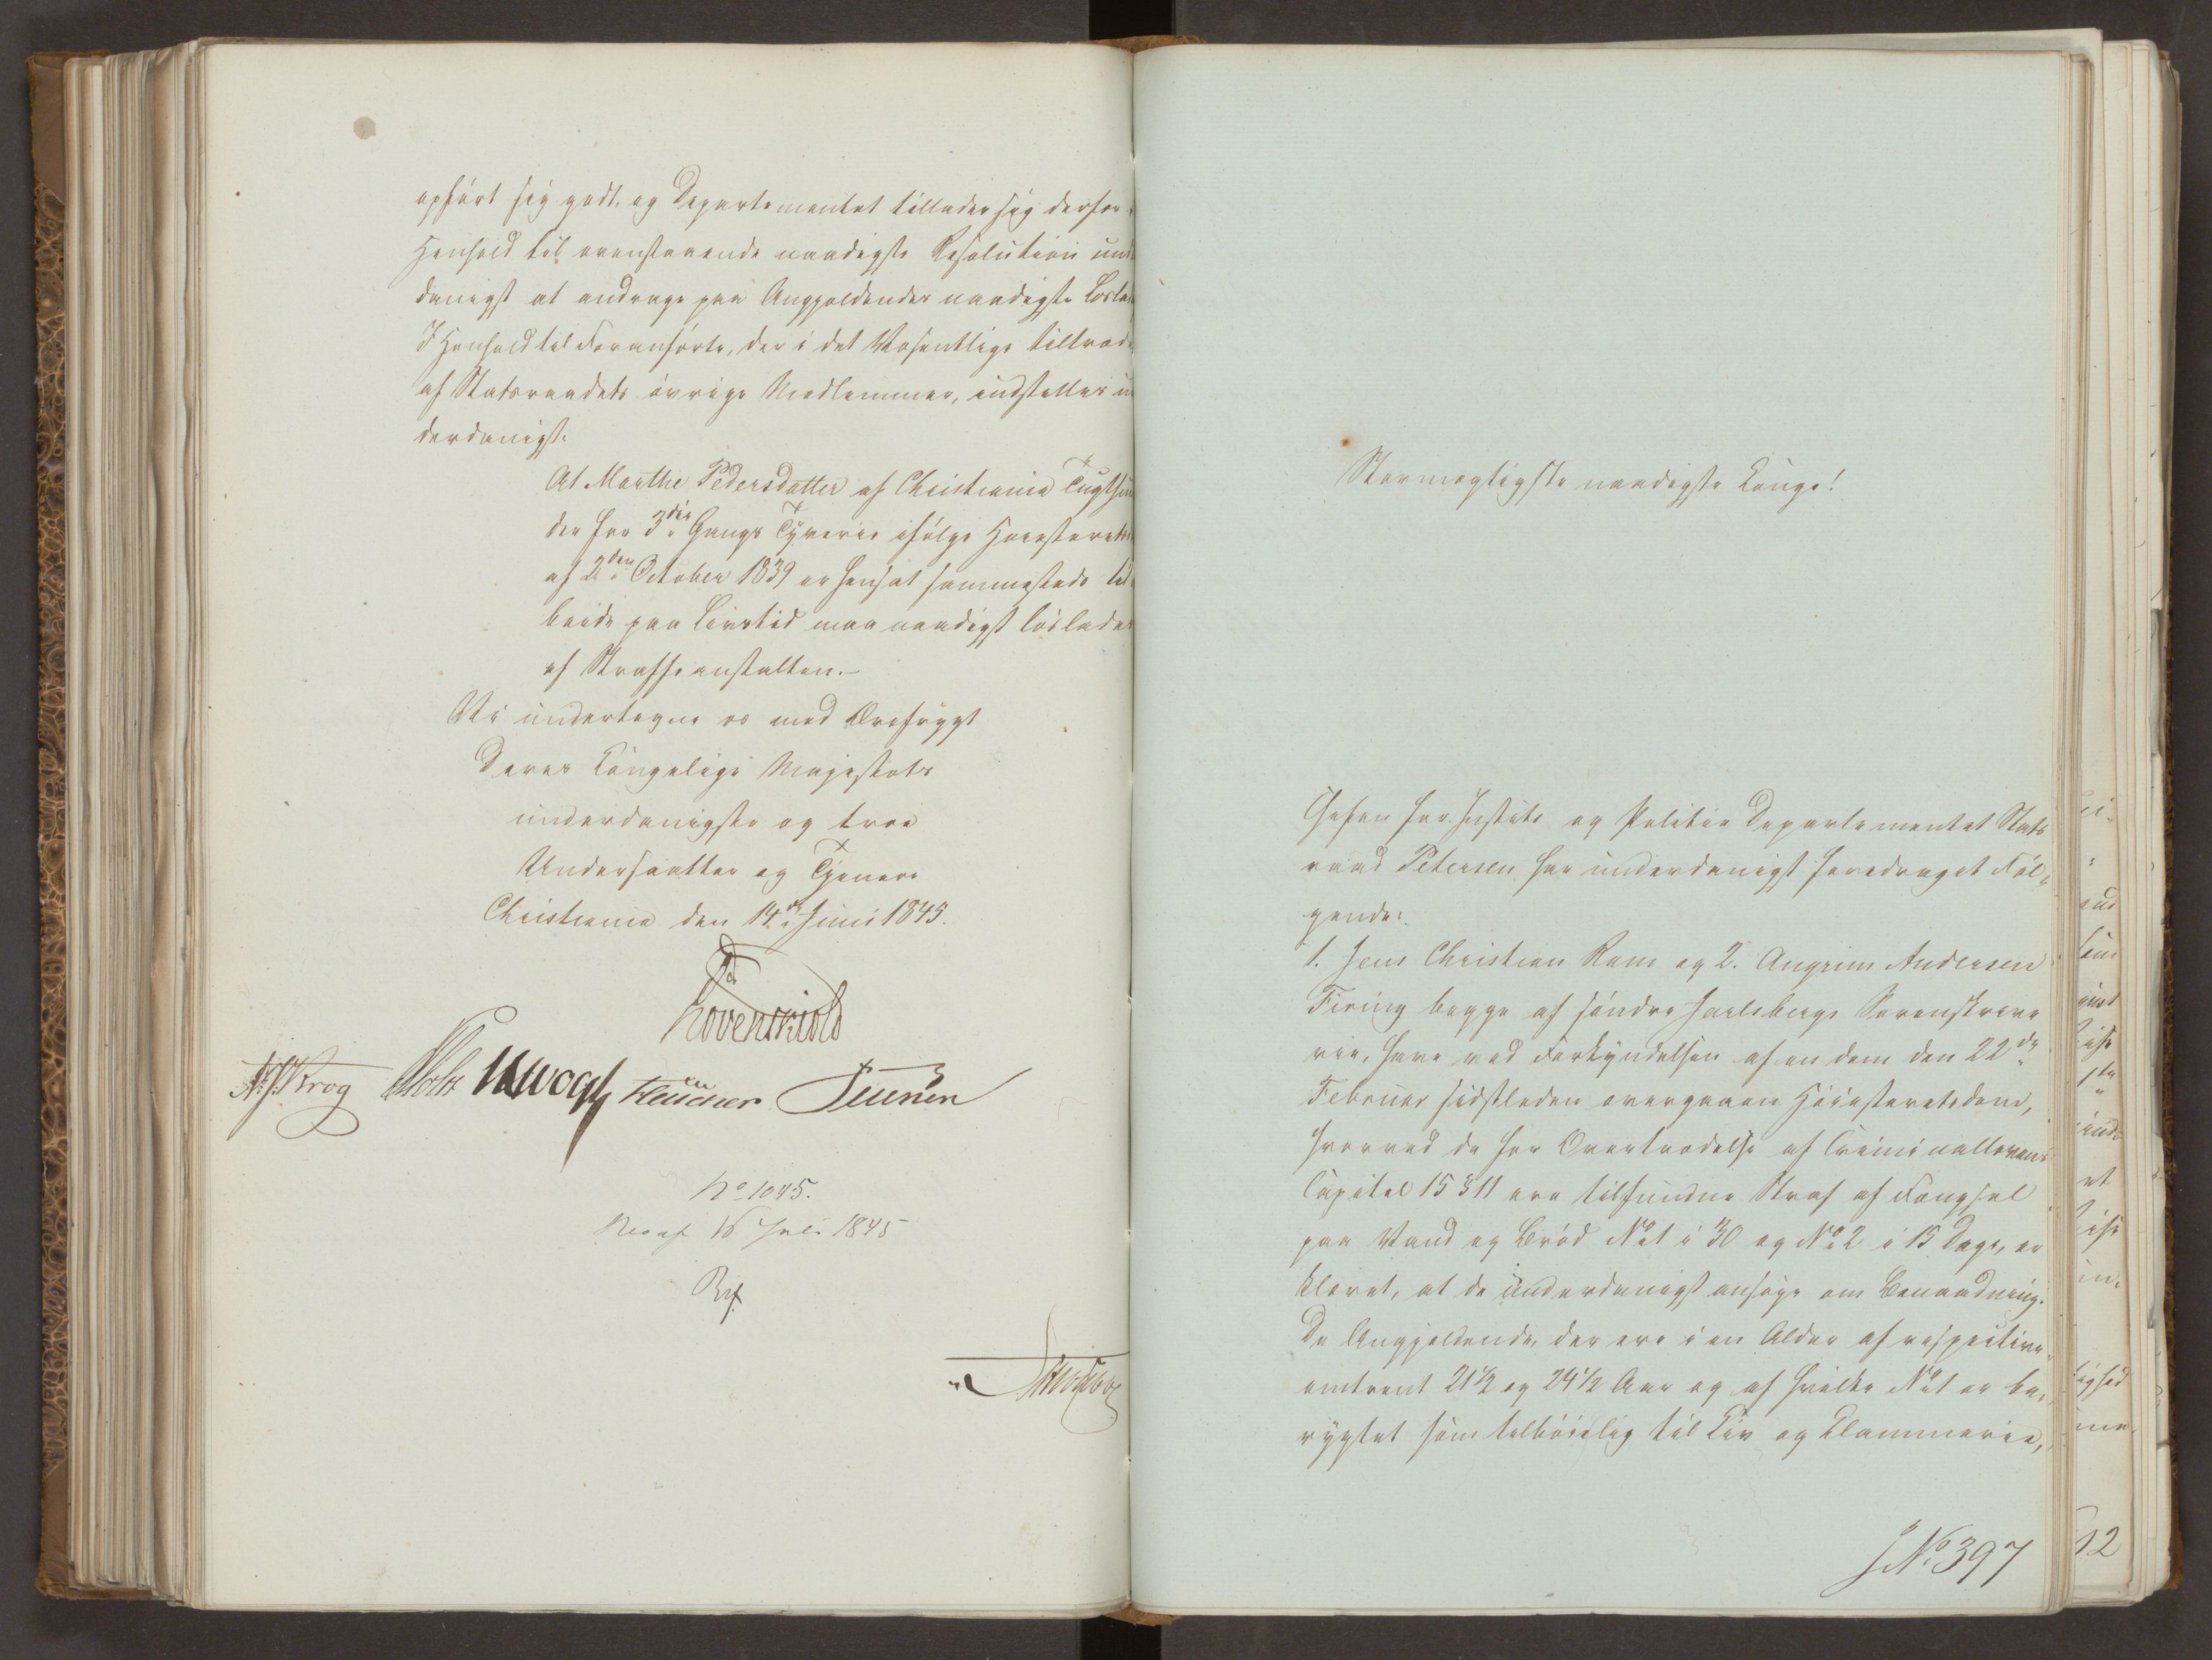 opført sig godt, og Departementet tillader sig derfor i
Henhold til ovenstaaende naadigste Resolution und
danigst at andrage paa Angjeldendes naadigste Løslad
I Henhold til Foranførte, der i det Væsentlige tiltræd
af Statsraadets øvrige Medlemmer, indstilles un
derdanigst:
At Marthe Pedersdatter af Christiania Tugthuus
der for 3die Gangs Tyverie ifølge Høiesterets
af 2den October 1839 er hensat sammesteds til
beide paa Livstid maa naadigst løslades
af Straffeanstalten.-
Vi undertegne os med Ærefrygt
Deres Kongelige Majestæts
underdanigste og troe
Undersaatter og Tjenere
Christiania den 14de Juni 1845.
Løvenskiold
Krog Vogt Petersen
No 1045.
Res af 16 Juli 1845
Stormægtigste naadigste Konge!
Chefen for Justits og Politie Departementet Stats
raad Petersen har underdanigst foredraget Føl-
gende:
1. Jens Christian Ram og 2. Angrim Andersen
Firing begge af søndre Jarlsbergs Sorenskrive
rie, have ved Forkyndelsen af en dem den 22de
Februar sidstleden overgaaen Høiesteretsdom,
hvorved de for Overtrædelse af Criminallovens
Capitel 15 § 11 ere tilfundne Straf af Fængsel
paa Vand og Brød No 1 i 30 og No 2 i 15 Dage, er
klæret, at de underdanigst ansøge om Benaadning.
De Angjeldende, der ere i en Alder af respective
omtrent 21½ og 24½ Aar og af hvilke No 1 er be-
rygtet som tilbøielig til Kiv og Klammerie,
J No 397